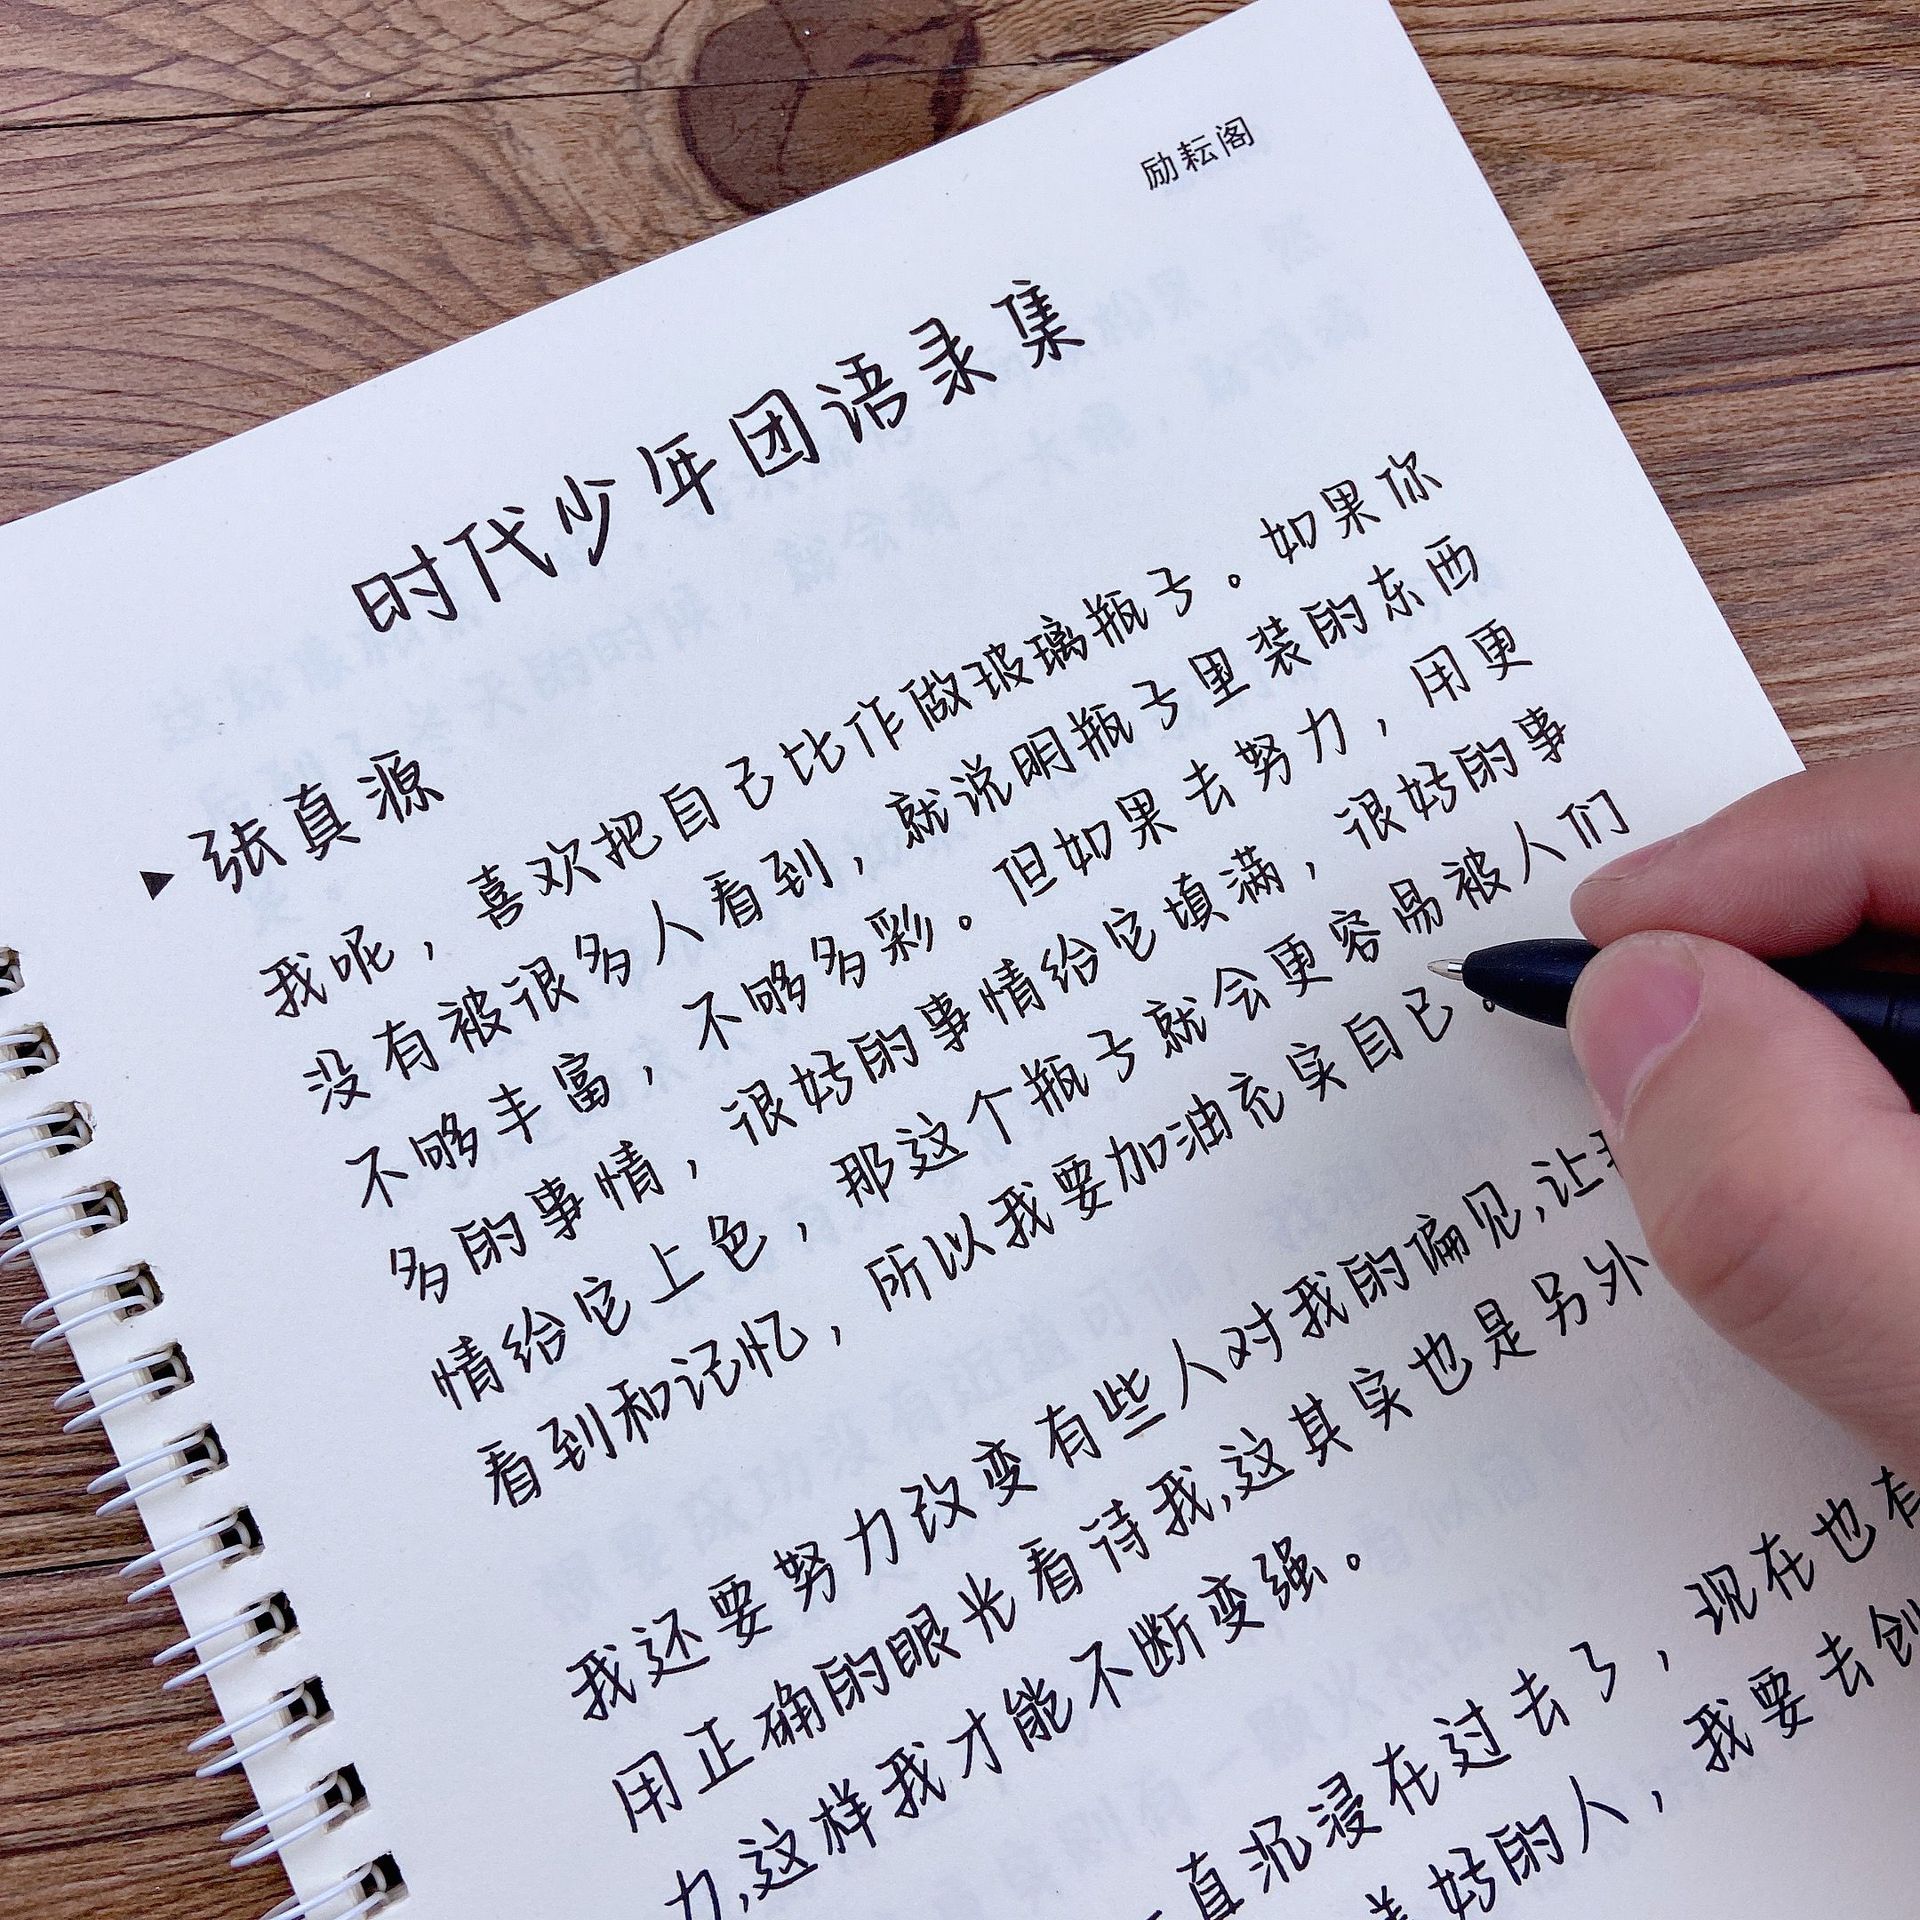 励耘阁
时代少年团语录集
▶张真源
我呢，喜欢把自己比作做玻璃瓶子。如果你
没有被很多人看到，就说明瓶子里装的东西
不够丰富，不够多彩。但如果去努力，用更
多的事情，很好的事情给它填满，很好的事
情给它上色，那这个瓶子就会更容易被人们
看到和记忆，所以我要加油充实自己。
我还要努力改变有些人对我的偏见,让
用正确的眼光看待我,这其实也是另外
力,这样我才能不断变强。
直沉浸在过去了，现在也有
美好的人，我要去创